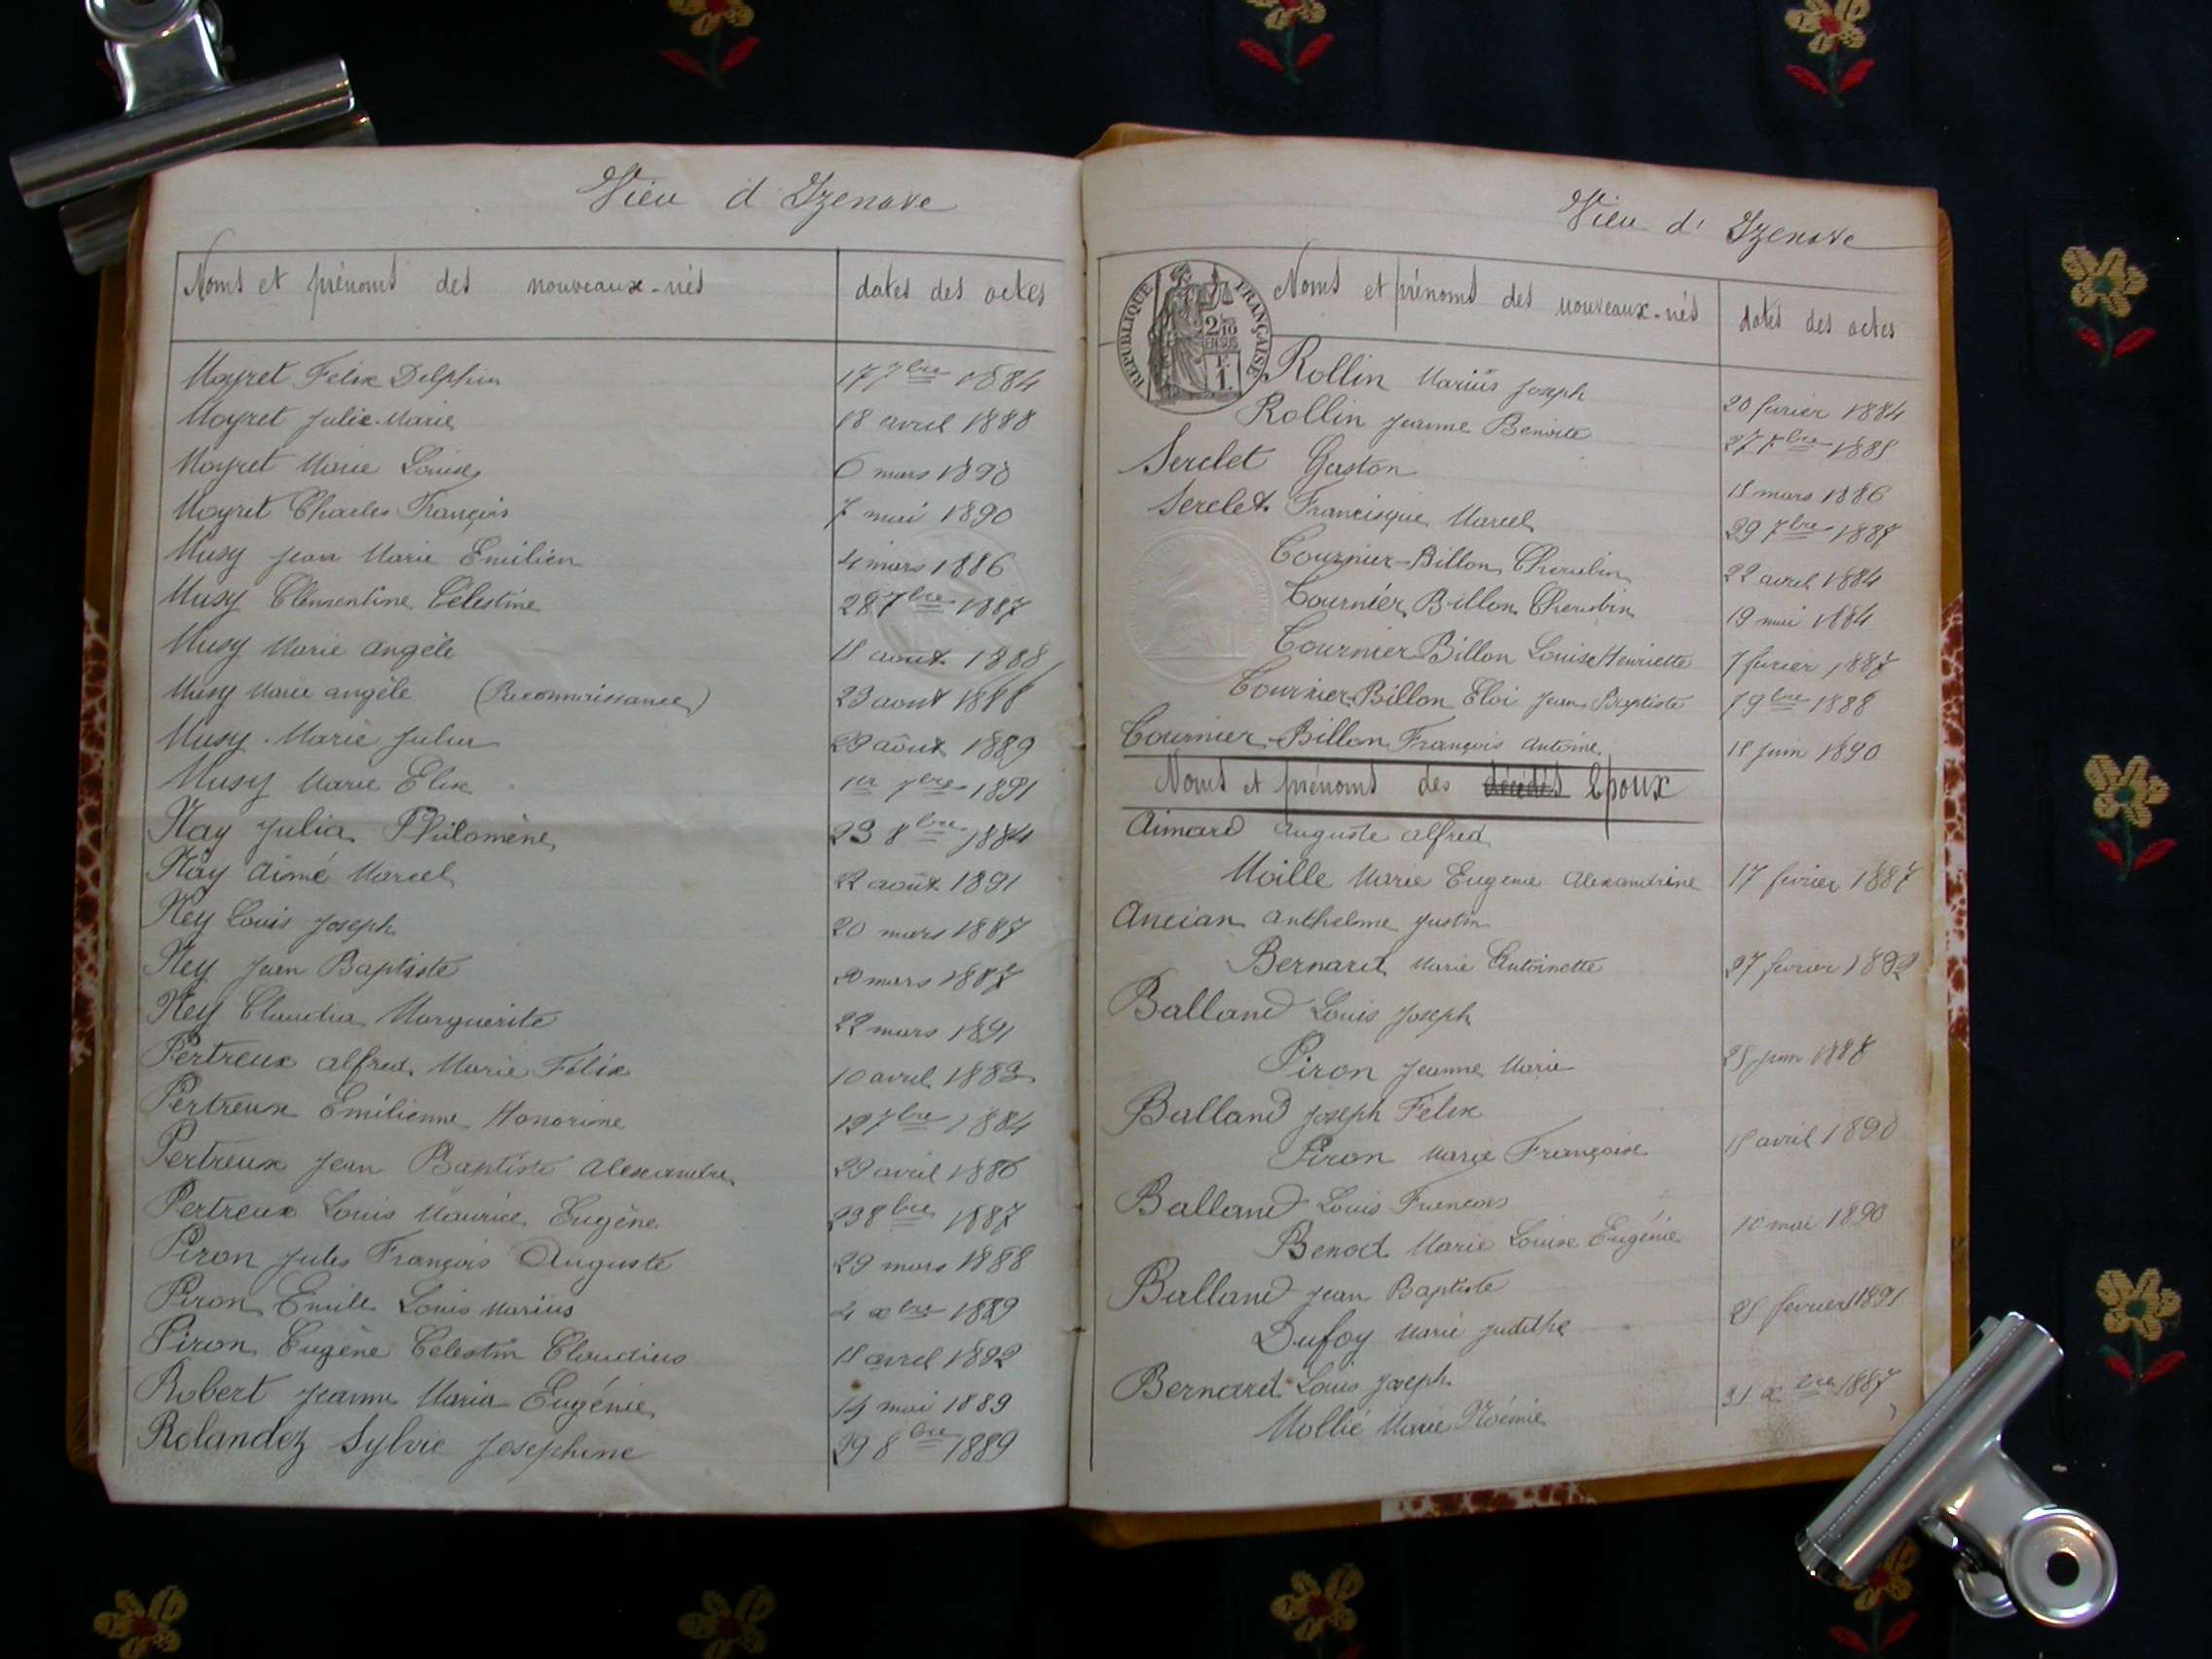 Vieu d'Izenave
Noms et prénoms des nouveaux-nés dates des actes
Moyret Felix Delphin 17 7bre 1884
Moyret Julie-Marie 18 avril 1888
Moyret Marie Louise 6 mars 1890
Moyret Charles François 7 mai 1890
Musy Jean Marie Emilien 4 mars 1886
Musy Clémentine Célestine 28 7bre 1887
Musy Marie Angèle 18 août 1888
Musy Marie angèle (Reconnaissance) 23 aout 1888
Musy Marie Julia 29 août 1889
Musy Marie Elise 1er 7bre 1891
Nay Julia Philomène 23 8bre 1884
Nay Aimé Marcel 22 août 1891
Ney Louis Joseph 20 mars 1887
Ney Jean Baptiste 20 mars 1887
Ney Claudia Marguerite 22 mars 1891
Pertreux Alfred Marie Félix 10 avril 1883
Pertreux Emilienne Honorine 19 7bre 1884
Pertreux Jean Baptiste Alexandre 29 avril 1886
Pertreux Louis Maurice Eugène 29 8bre 1887
Piron Jules François Auguste 29 mars 1888
Piron Emile Louis Marius 4 xbre 1889
Piron Eugène Célestin Claudius 18 avril 1892
Robert Jeanne Maria Eugénie 14 mai 1889
Rolandez Sylvie Josephine 29 8bre 1889
Vieu d'Izenave
Noms et prénoms des nouveaux-nés dates des actes
RÉPUBLIQUE FRANÇAISE
2/10
EN SUS
F.
1.
Rollin Marius Joseph 20 fevrier 1884
Rollin Jeanne Benoite 27 8bre 1885
Serclet Gaston 18 mars 1886
Serclet Francisque Marcel 29 7bre 1887
Tournier-Billon Cherubin 22 avril 1884
Tournier Billon Cherubin 19 mai 1884
Tournier-Billon Louise Henriette 7 fevrier 1887
Tournier-Billon Eloi Jean Baptiste 7 9bre 1888
Tournier-Billon François Antoine 18 juin 1890
Noms et prénoms des décédés Epoux
Aimard Auguste Alfred
Moille Marie Eugenie Alexandrine 17 fevrier 1887
Ancian Anthelme Justin
Bernard Marie Antoinette 27 fevrier 1892
Balland Louis Joseph
Piron Jeanne Marie 25 juin 1888
Balland Joseph Felix
Piron Marie Françoise 18 avril 1890
Balland Louis Francois
Benod Marie Louise Eugénie 10 mai 1890
Balland Jean Baptiste
Dufoy Marie Judithe 25 fevrier 1891
Bernard Louis Joseph
Mollié Marie Noémie 31 xbre 1887